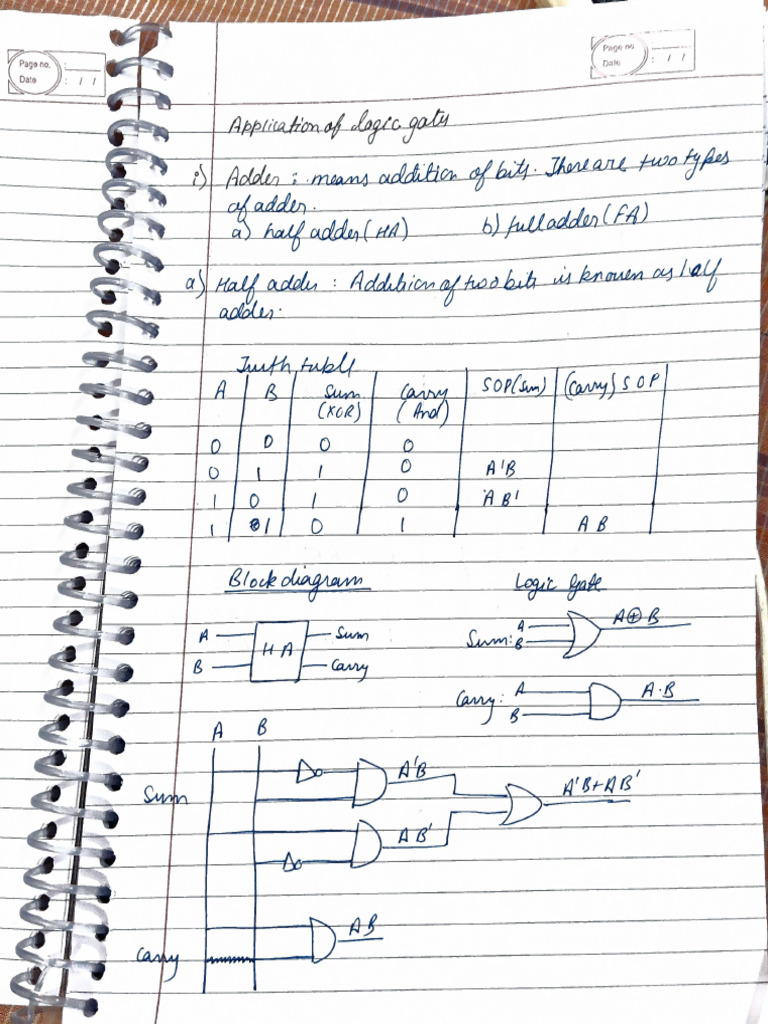 Page no. :
Date : / /
Page no
Date : / /
Application of logic gate
i) Adder : means addition of bits. There are two types
of adder.
a) half adder (HA) b) full adder (FA)
a) Half adder : Addition of two bits is known as half
adder.
Truth table
A B Sum (XOR) Carry (And) SOP (Sum) (Carry) SOP
0 0 0 0
0 1 1 0 A'B
1 0 1 0 AB'
1 1 0 1 AB
Block diagram Logic gate
A HA Sum
B Carry
Sum: A B A⊕B
Carry: A B A·B
A B
Sum A'B AB' A'B+AB'
Carry AB